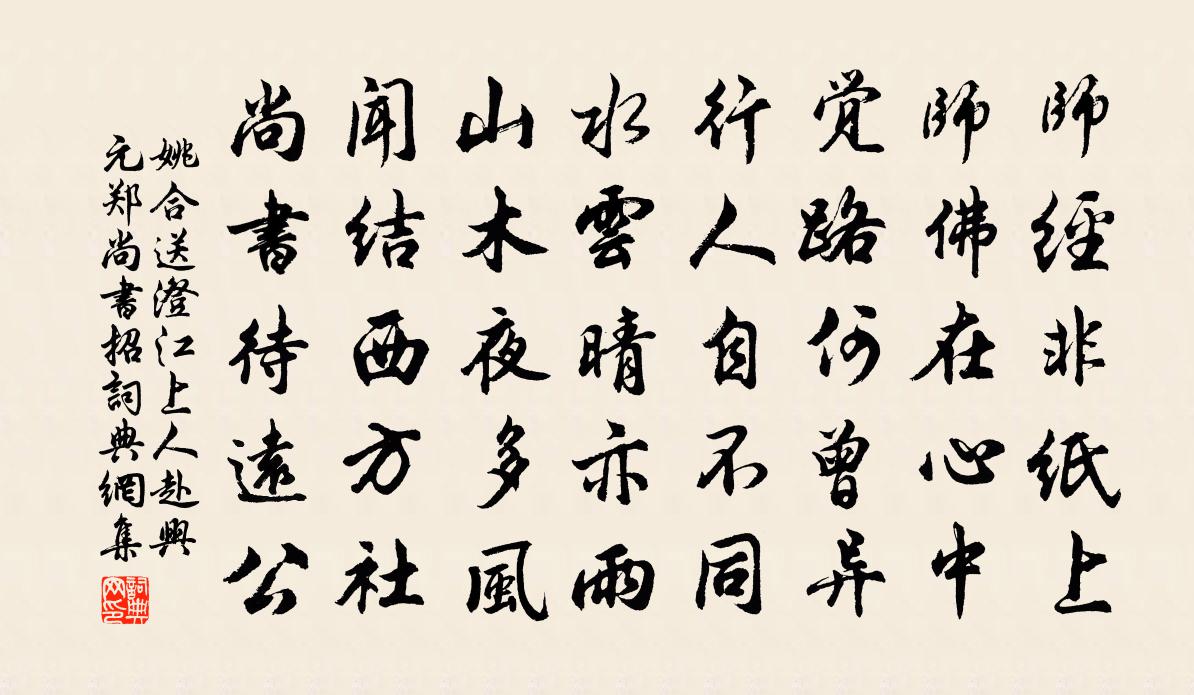 師經非紙上
師佛在心中
觉路何曾异
行人自不同
水雲晴亦雨
山木夜多風
闻结西方社
尚書待遠公
姚合送澄江上人赴興
元郑尚書招詞典網集
詞典
网印